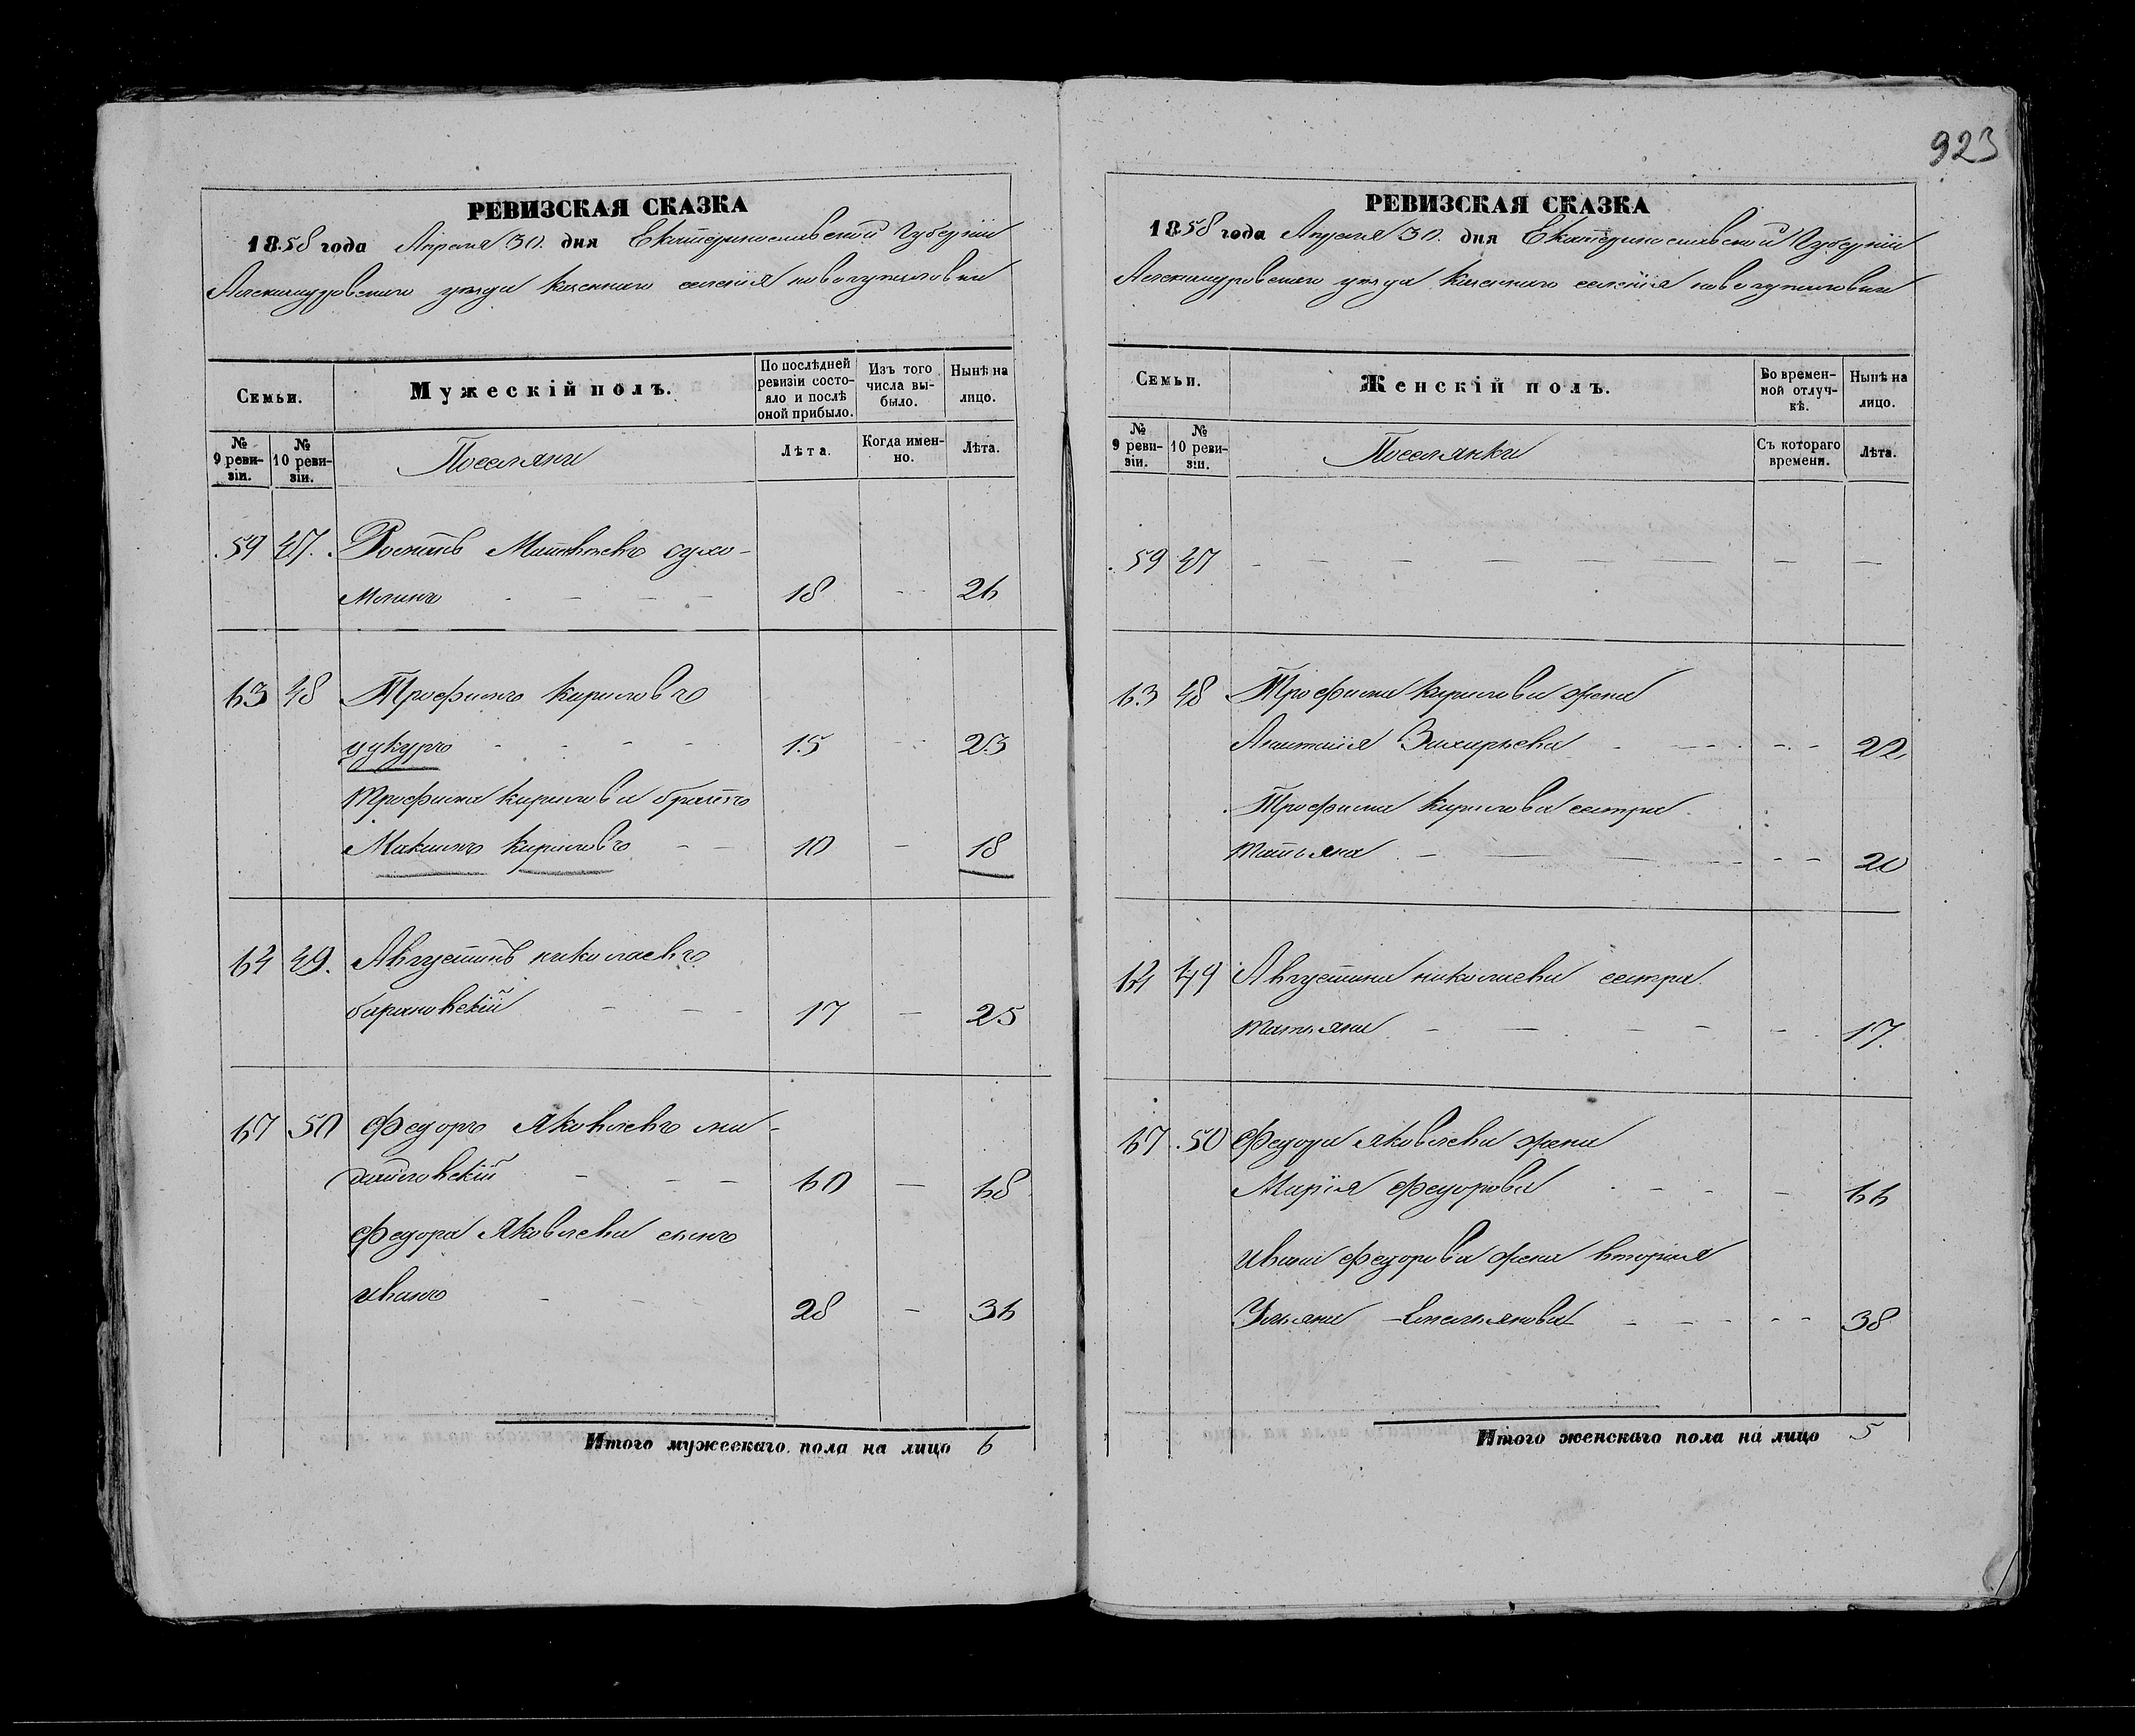 923
РЕВИЗСКАЯ СКАЗКА
1858 года Апреля 30. дня Екатеринославской Губернiи
Александровскаго уезда Казеннаго селенiя новогупаловки
Семьи.
Мужескiй полъ.
По послѣдней ревизiи состояло и послѣ оной прибыло.
Изъ того числа выбыло.
Нынѣ на лицо.
№ 9 ревизiи.
№ 10 ревизiи.
Поселяне
Лѣта.
Когда именно.
Лѣта.
59 47. Матвѣевъ сухо-
млинъ - - - - 18 - 26
63 48 Трофимъ кириловъ
цукуръ - - - - 15 - 23
трофима кирилова братъ
Максимъ кириловъ - - 10 - 18
64 49. Августинъ николаевъ
барановскiй - - - 17 - 25
67 50 Федоръ Яковлевъ ми-
хайловскiй - - - 60 - 68
Федора Яковлева сынъ
иванъ - - - 28 - 36
Итого мужескаго пола на лицо 6
РЕВИЗСКАЯ СКАЗКА
1858 года Апреля 30. дня Екатеринославской Губернiи
Александровскаго уезда Казеннаго селенiя новогупаловки
Семьи.
Женскiй полъ.
Во временной отлучкѣ.
Нынѣ на лицо.
№ 9 ревизiи.
№ 10 ревизiи.
Поселянки
Съ котораго времени.
Лѣта.
59 47 - - - - - - - -
63 48 Трофима кирилова жена
Захарьева - - - - 22
Трофима Кирилова сестра
татьяна - - - - - - 20
64 49 Августина николаева сестра
татьяна - - - - - 17.
67 50 Федора яковлева жена
Марiя Федорова - - - - 66
ивана Федорова жена вторая
Ульяна Емельянова - - - - - 38
Итого женскаго пола на лицо 5